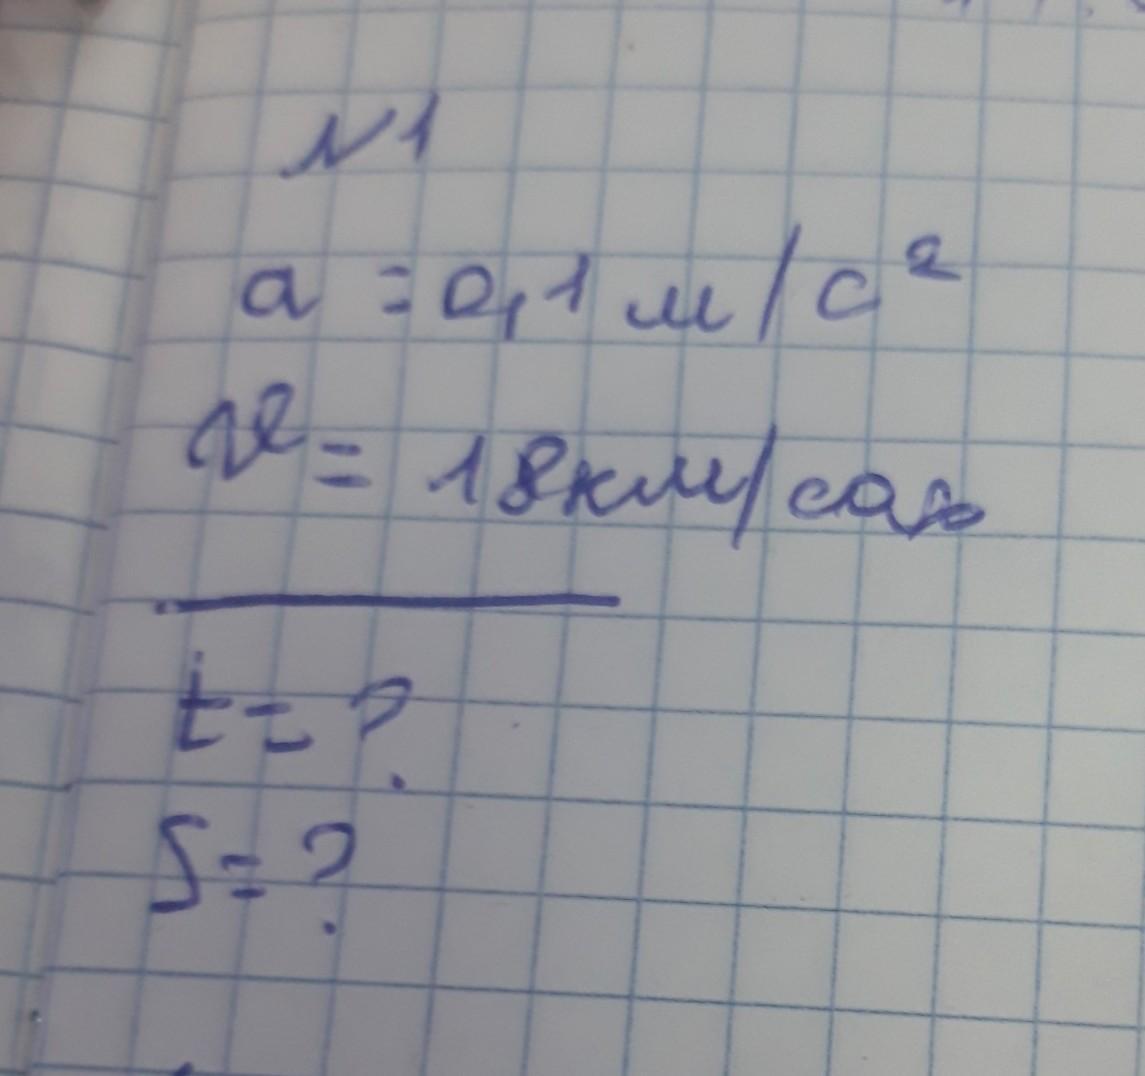 N1
a = 0,1 м/с²
υ = 18км/саҳ
t = ?
S = ?